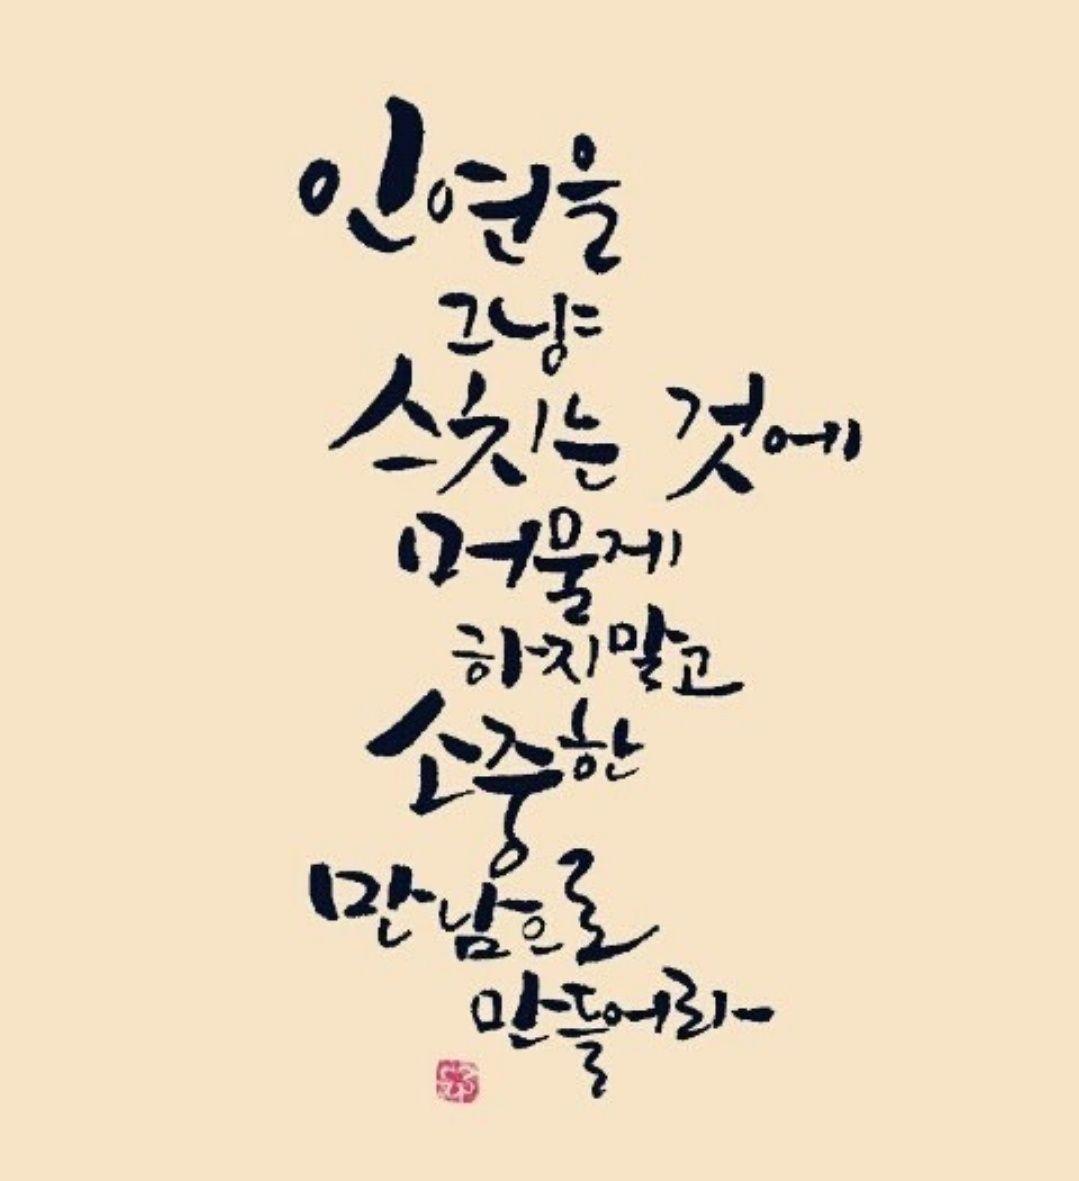 인연을
그냥
스치는 것에
머물게
하지말고
소중한
만남으로
만들어라